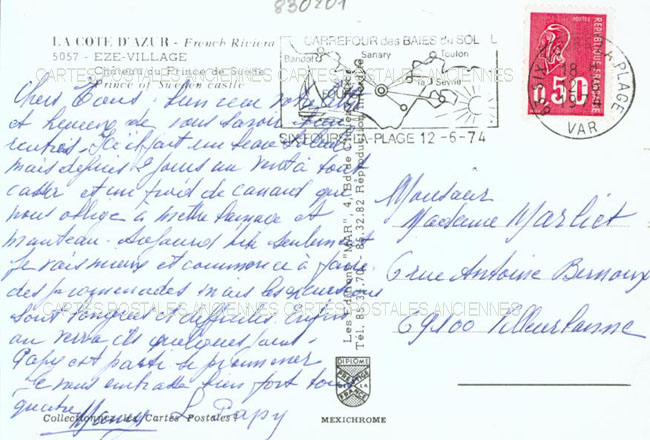 830201
LA COTE D'AZUR - French Riviera
5057 - EZE-VILLAGE
Château du Prince de Suède
Prince of Sweden castle
CARREFOUR des BAIES du SOL L
Bandol
Sanary
Toulon
SIX-FOURS-LA-PLAGE 12-6-74
18
VAR
REPUBLIQUE FRANÇAISE
0,50
CARTES POSTALES ANCIENNES CARTES POSTALES ANCIENNES
Chers Tous : bien reçu votre
et heureux de vous savoir bien
rentrés. Ici il fait un beau soleil
mais depuis 2 jours un vent à tout
casser et un froid de canard qui
nous oblige à mettre lainage et
manteau. Aujourd'hui seulement
je vais mieux et commence à faire
des promenades mais les
sont longues et difficiles. Enfin
on verra d'ici quelques jours.
Papy est parti se promener
Je vous embrasse bien fort tous
quatre Mamy
Papy
Les Editions "MAR", 4, Bd de
Reproduction interdite
Monsieur
Madame Marliet
6 rue Antoine Bernoux
69100 Villeurbanne
CARTES POSTALES ANCIENNES CARTES POSTALES ANCIENNES
DIPLOME
PRESTIGE
DE LA
FRANCE
Collection Cartes Postales
MEXICHROME